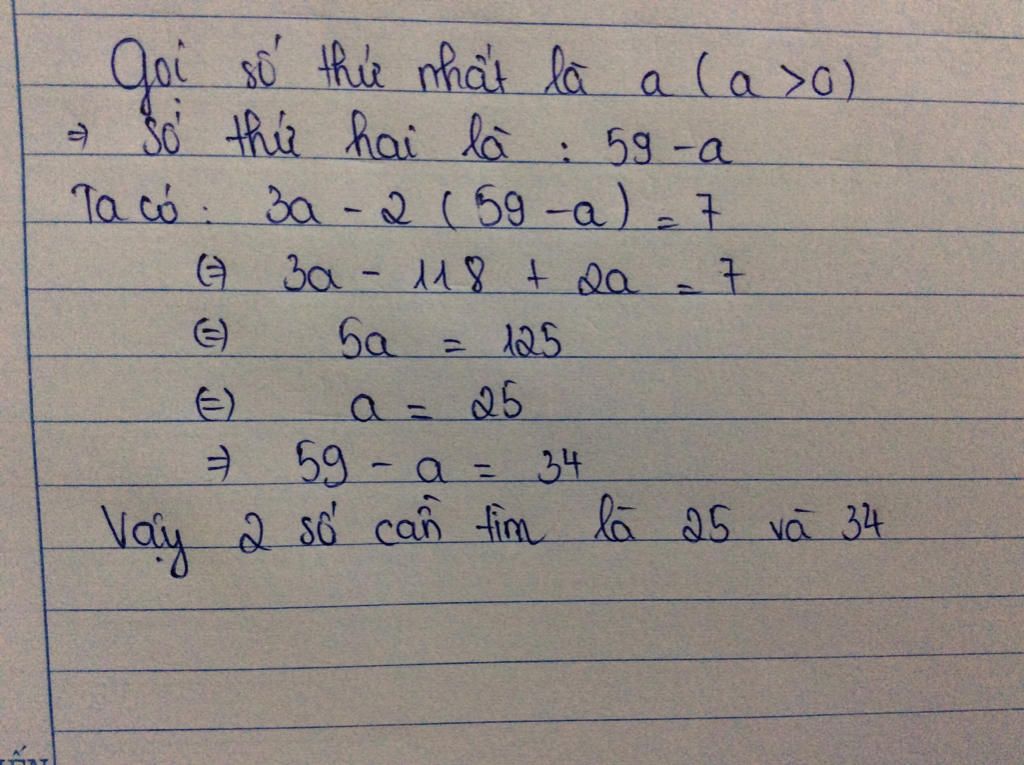 Gọi số thứ nhất là a (a>0)
⇒ Số thứ hai là : 59 - a
Ta có : 3a - 2 (59 - a) = 7
(=) 3a - 118 + 2a = 7
(=) 5a = 125
(=) a = 25
⇒ 59 - a = 34
Vậy 2 số cần tìm là 25 và 34